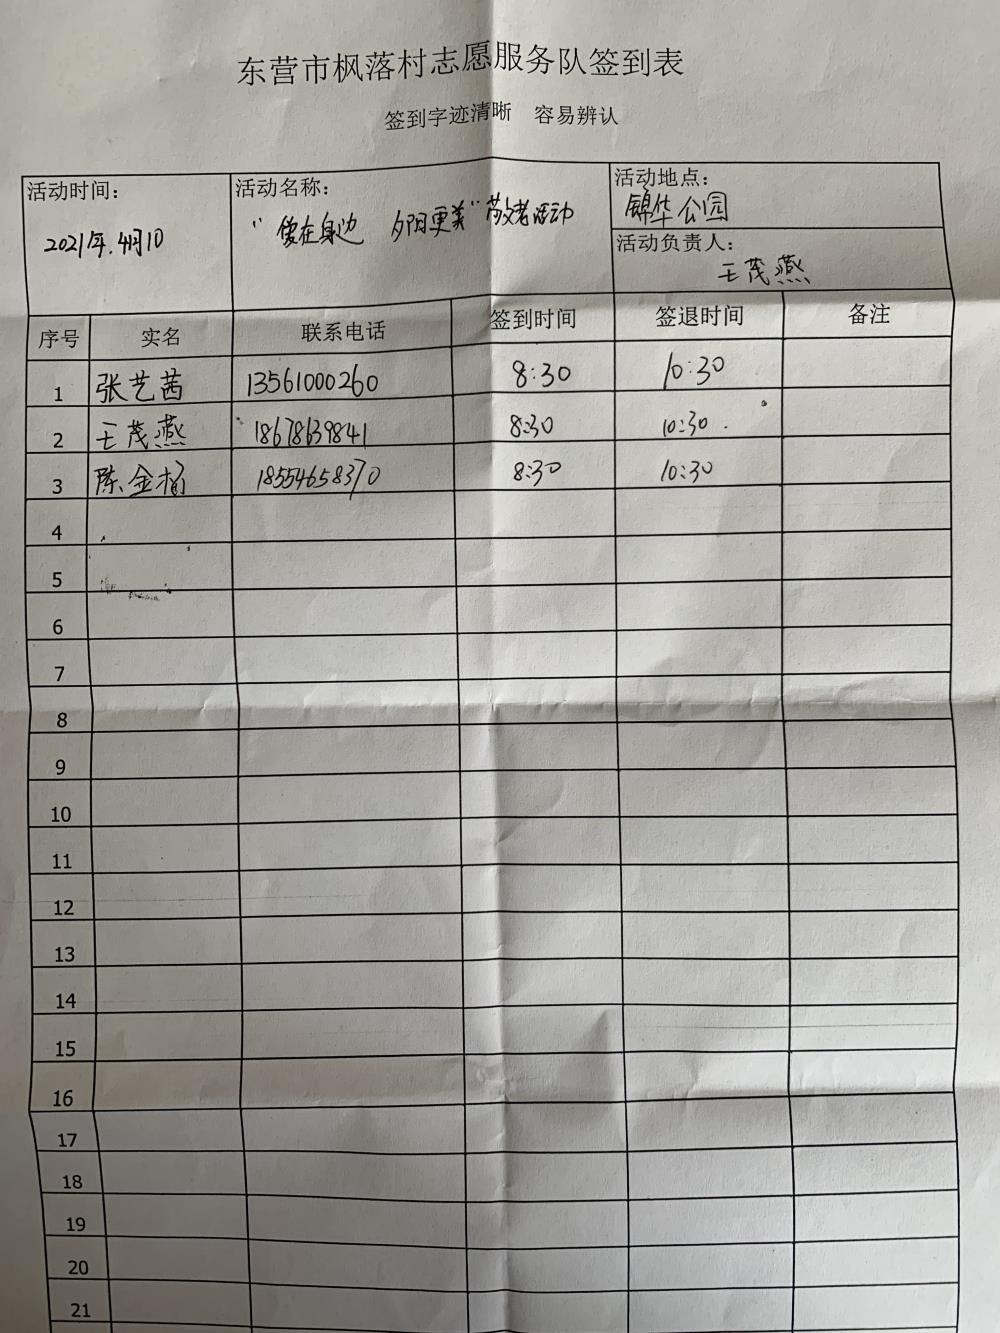 东营市枫落村志愿服务队签到表
签到字迹清晰 容易辨认
活动时间：
2021年.4月10
活动名称：
“爱在身边 夕阳更美”敬老活动
活动地点：
锦华公园
活动负责人：
王茂燕
序号 实名 联系电话 签到时间 签退时间 备注
1 张艺茜 13561000260 8:30 10:30
2 王茂燕 18678639841 8:30 10:30.
3 陈金 18554658370 8:30 10:30
4
5
6
7
8
9
10
11
12
13
14
15
16
17
18
19
20
21